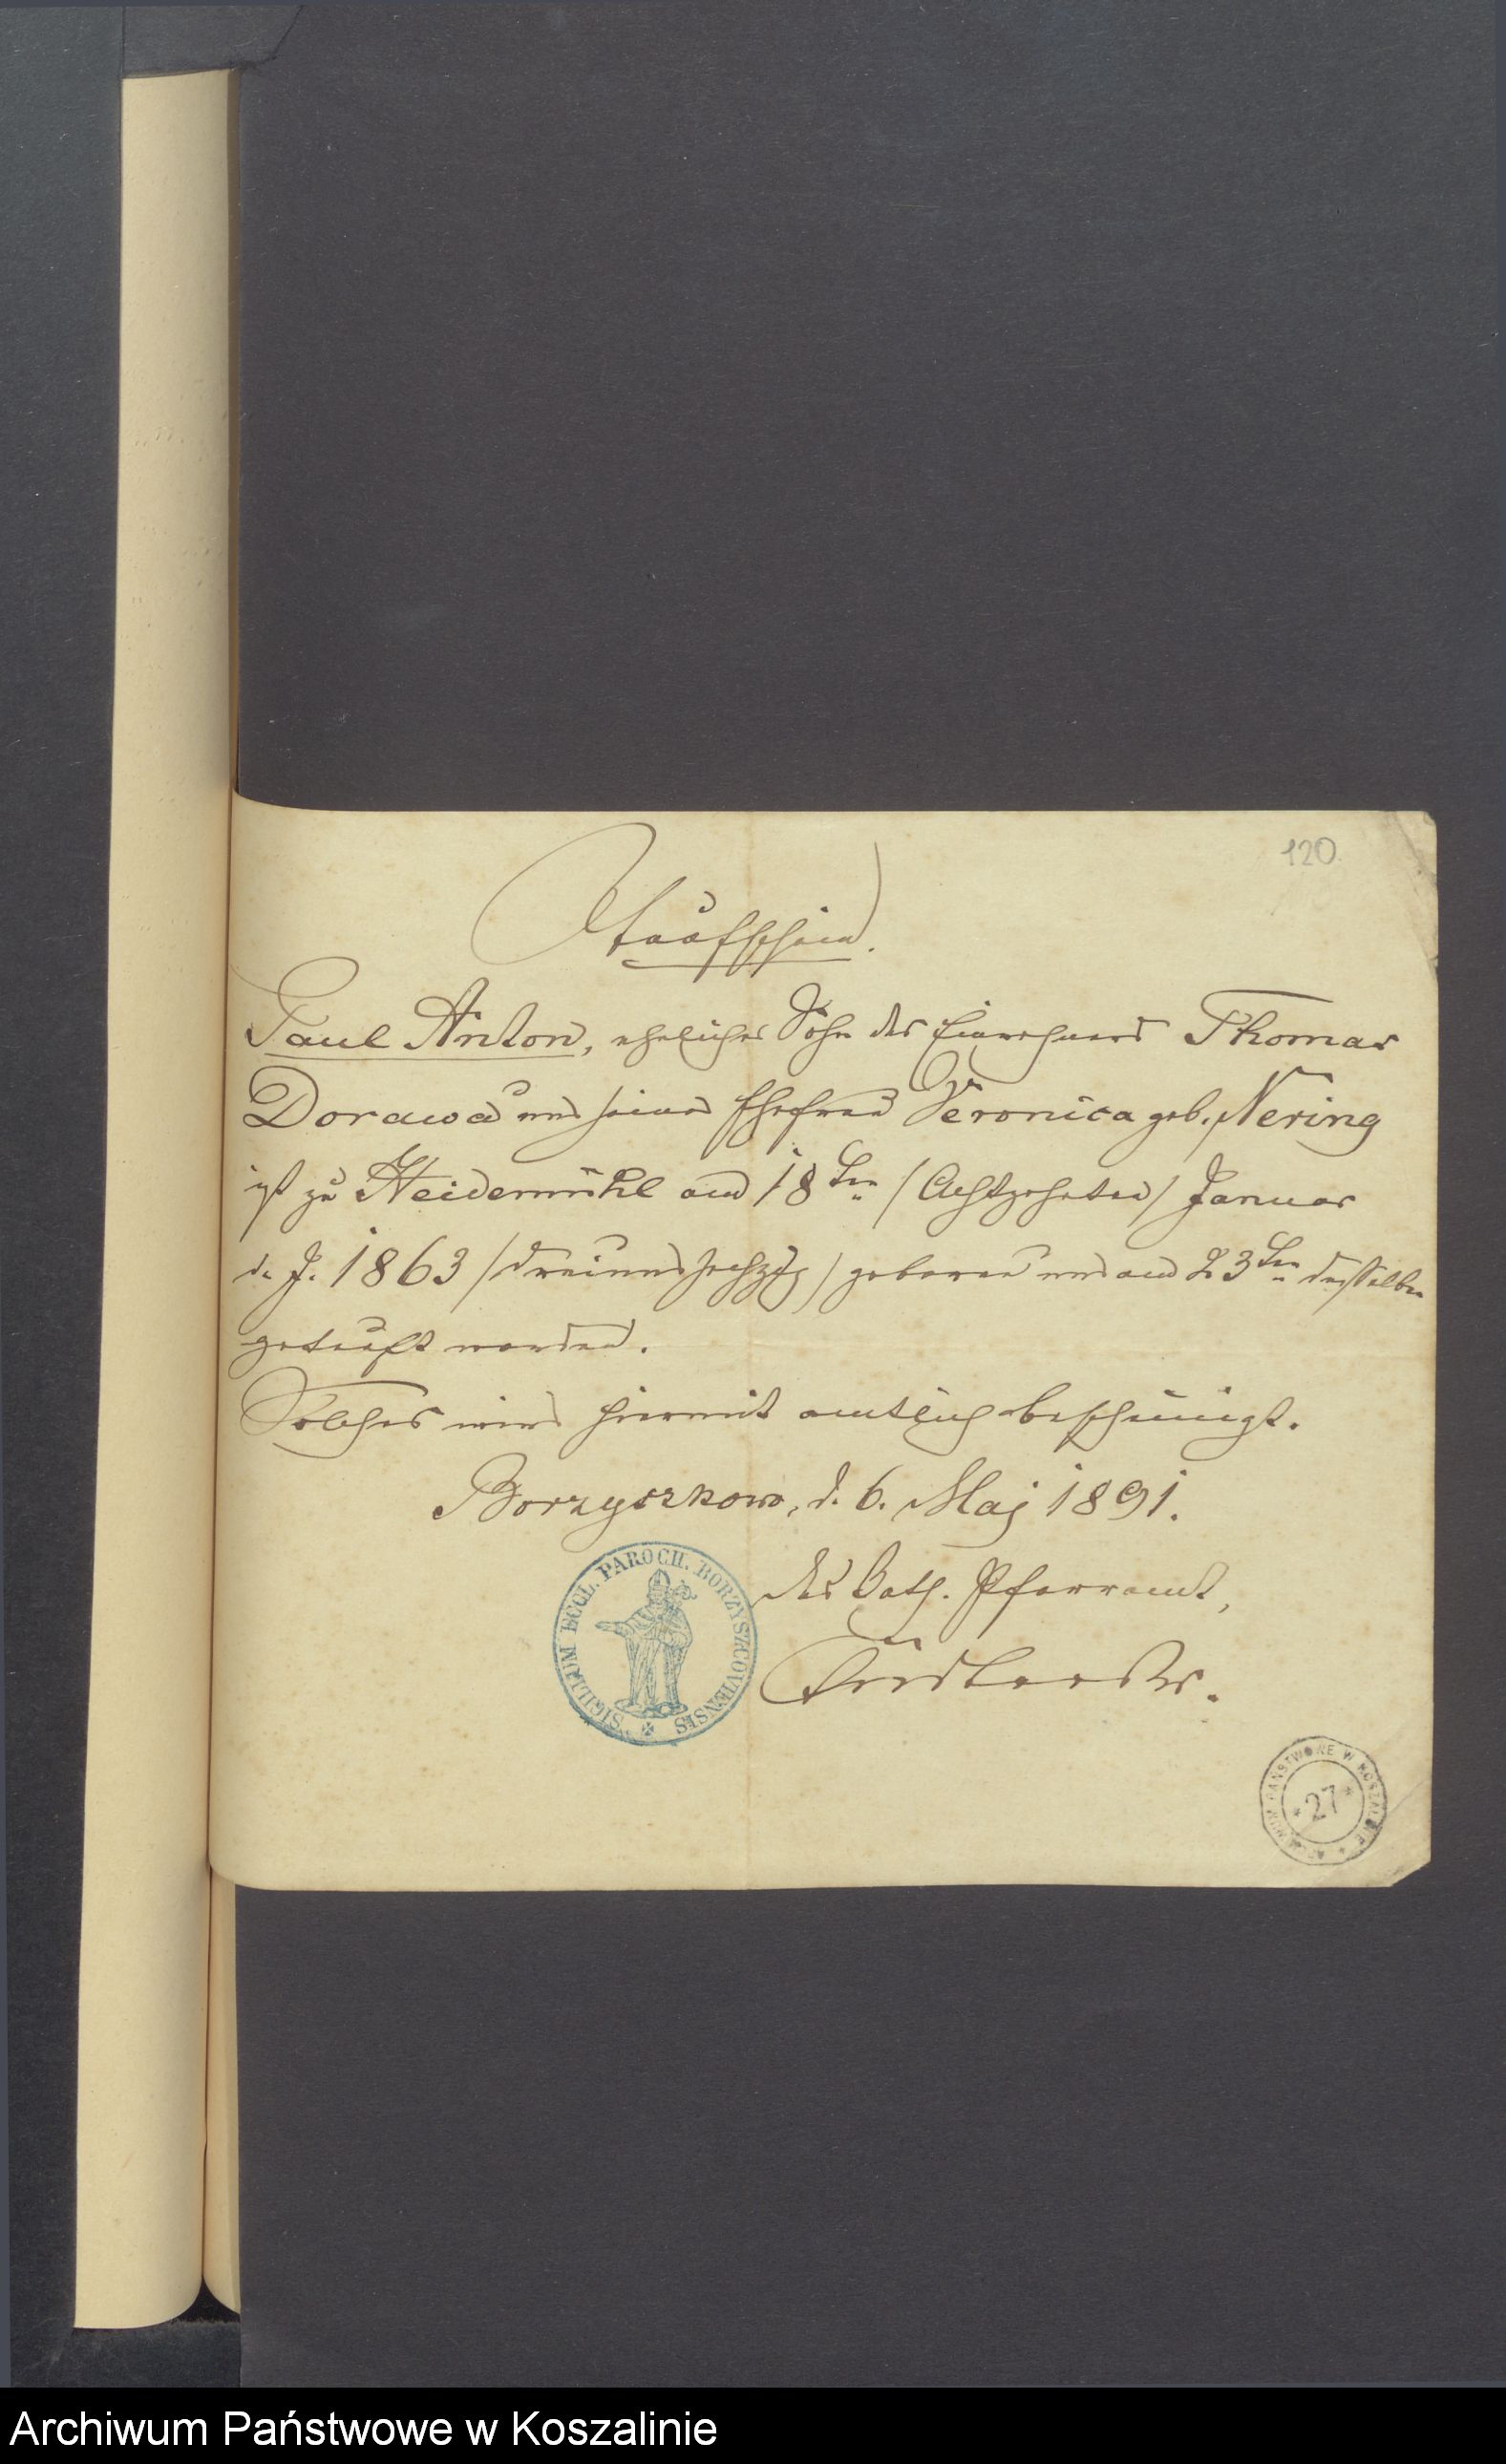 120.
Taufschein.
Paul Anton, ehelicher Sohn des Einwohners Thomas
Dorawa und seiner Ehefrau Veronica geb. Nering
ist zu Heidemühl am 18ten /Achtzehnten/ Januar
d. J. 1863 /dreiundsechzig/ geboren und am 23ten desselben
getauft worden.
Solches wird hiermit amtlich bescheinigt.
Borzyszkowo, d. 6. Maj 1891.
Das Cath. Pfarramt,
SIGILLUM ECCL. PAROCH. BORZYSZCOVIENSIS
ARCHIWUM PAŃSTWOWE W KOSZALINIE
* 27 *
Archiwum Państwowe w Koszalinie